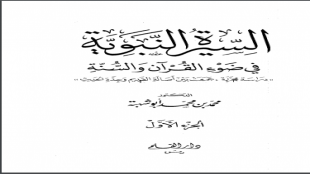 السيرة النبوية
في ضوء القرآن والسنة
دراسة محررة، جمعت بين أصالة القديم وجدة الحديث
الدكتور
محمد بن محمد أبو شهبة
الجزء الأول
دار القلم
دمشق